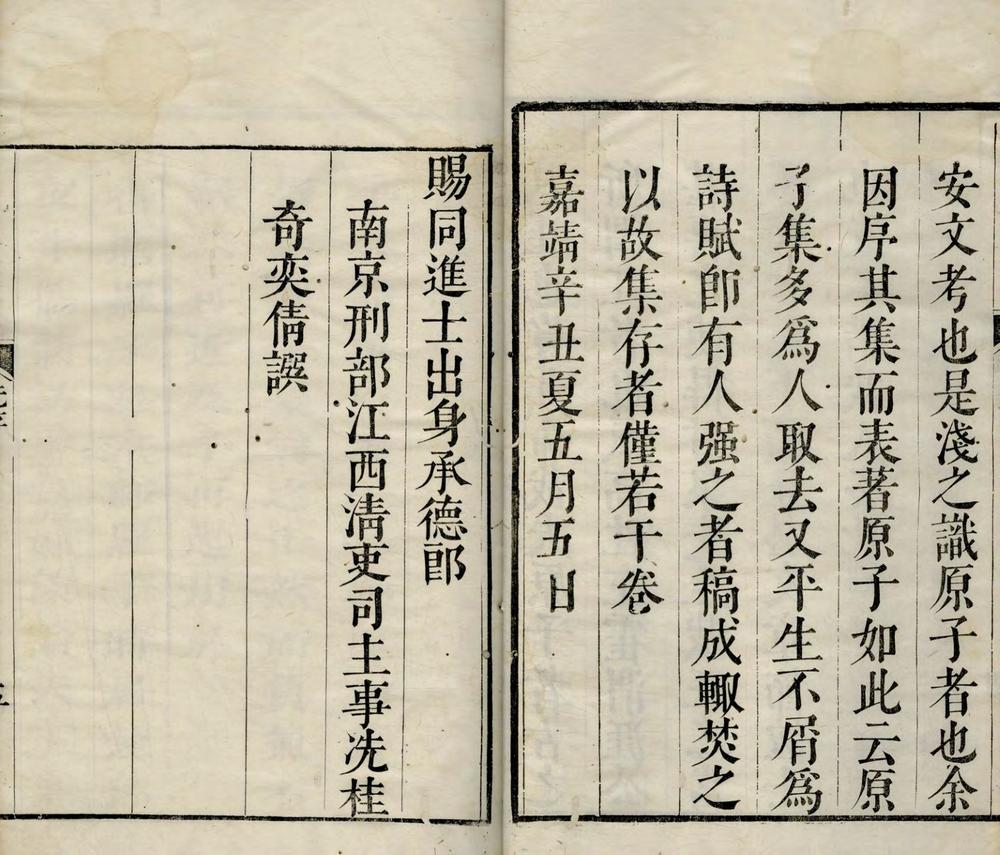 安文考也是淺之識原子者也余
因序其集而表著原子如此云原
子集多爲人取去又平生不屑爲
詩賦卽有人强之者稿成輙焚之
以故集存者僅若干卷
嘉靖辛丑夏五月五日
賜同進士出身承德郎
南京刑部江西清吏司主事冼桂
奇奕倩譔